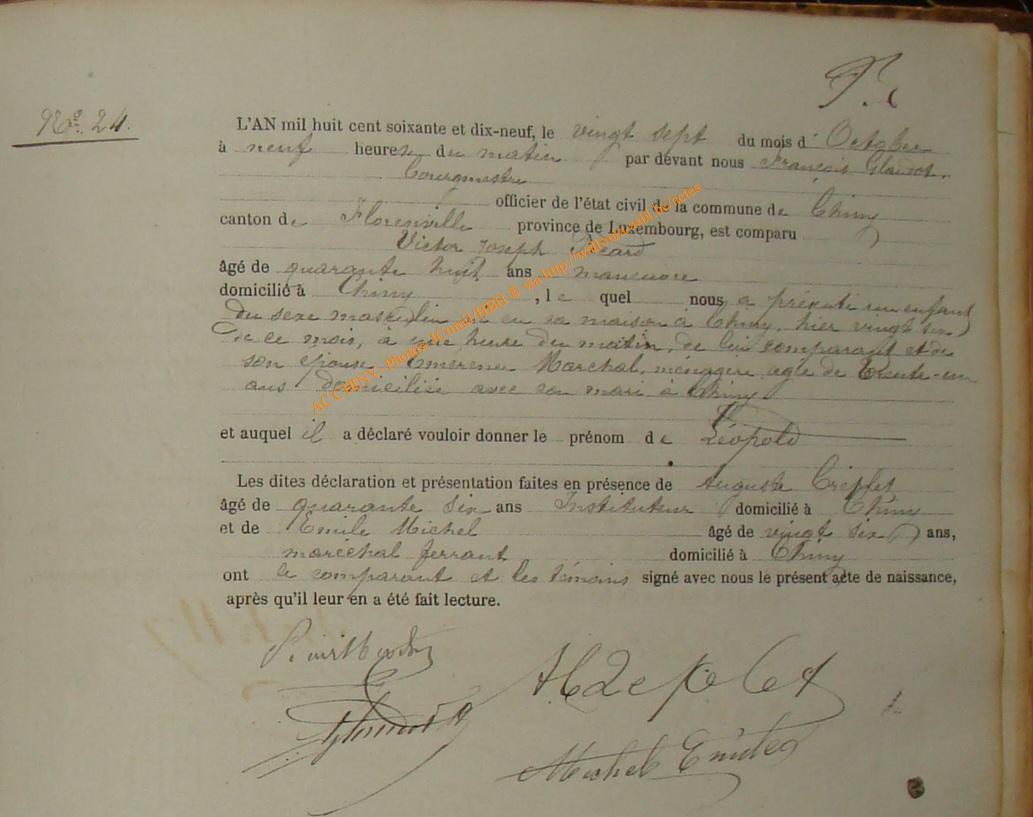 Nº 24.
L'AN mil huit cent soixante et dix-neuf, le vingt sept du mois d' Octobre
à neuf heures du matin par dévant nous François Glaudot,
bourgmestre
officier de l'état civil de la commune de Chiny
canton de Florenville province de Luxembourg, est comparu
Victor Joseph Picard
âgé de quarante huit ans manœuvre
domicilié à Chiny, le quel nous a présenté un enfant
du sexe masculin né en sa maison à Chiny, hier vingt six
de ce mois, à une heure du matin, de lui comparant et de
son épouse Emerence Marchal, ménagère, agée de trente-un
ans domiciliée avec son mari à Chiny
et auquel il a déclaré vouloir donner le prénom de Léopold
Les dites déclaration et présentation faites en présence de Auguste
âgé de quarante six ans Instituteur domicilié à Chiny
et de Emile Michel âgé de vingt six ans,
maréchal ferrant domicilié à Chiny
ont le comparant et les témoins signé avec nous le présent acte de naissance,
après qu'il leur en a été fait lecture.
Michel Emile
AC CHINY - Photos JComi/HBH-E via http://wallonia.